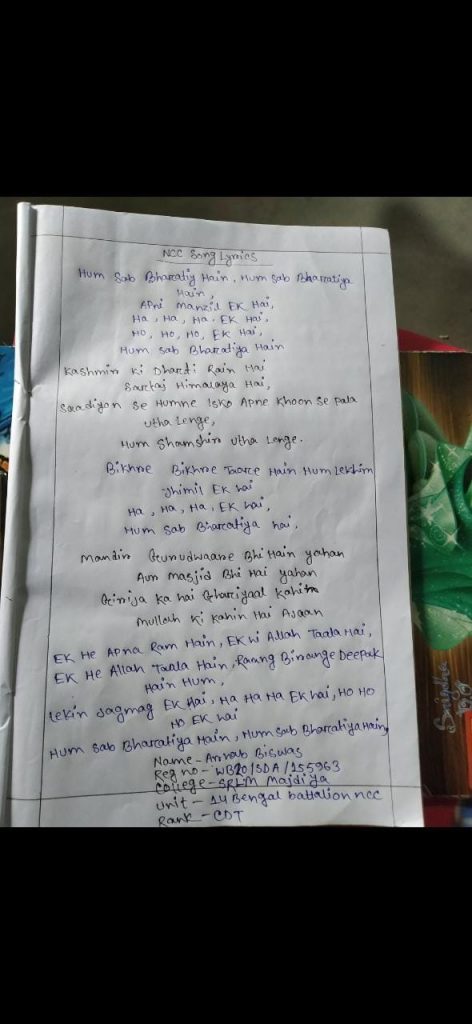 NCC Song Lyrics
Hum Sab Bharatiy Hain, Hum Sab Bharatiya
Hain,
Apni Manzil Ek Hai,
Ha, Ha, Ha, Ek Hai,
Ho, Ho, Ho, Ek Hai,
Hum Sab Bharatiya Hain
Kashmir Ki Dharti Rain Hai
Sartaj Himalaya Hai,
Saadiyon Se Humne Isko Apne Khoon Se pala
Utha Lenge,
Hum Shamshir Utha Lenge.
Bikhre Bikhre Taare Hain Hum Lekhim
Jhimil Ek hai
Ha, Ha, Ha, Ek hai,
Hum Sab Bharatiya hai,
Mandir Gurudwaare Bhi Hain yahan
Aur Masjid Bhi Hai yahan
Girija Ka hai Ghariyaal Kahim
Mullah Ki Kahin Hai Ajaan
Ek He Apna Ram Hain, Ek hi Allah Taala Hai,
Ek He Allah Taala Hain, Raang Birange Deepak
Hain Hum,
Lekin Jagmag Ek Hai, Ha Ha Ha Ek hai, Ho Ho
Ho Ek hai
Hum Sab Bharatiya Hain, Hum Sab Bharatiya Hain,
Name - Arnab Biswas
Reg no - WB20/SDA/155963
College - SRLM Majdiya
Unit - 14 Bengal battalion ncc
Rank - CDT